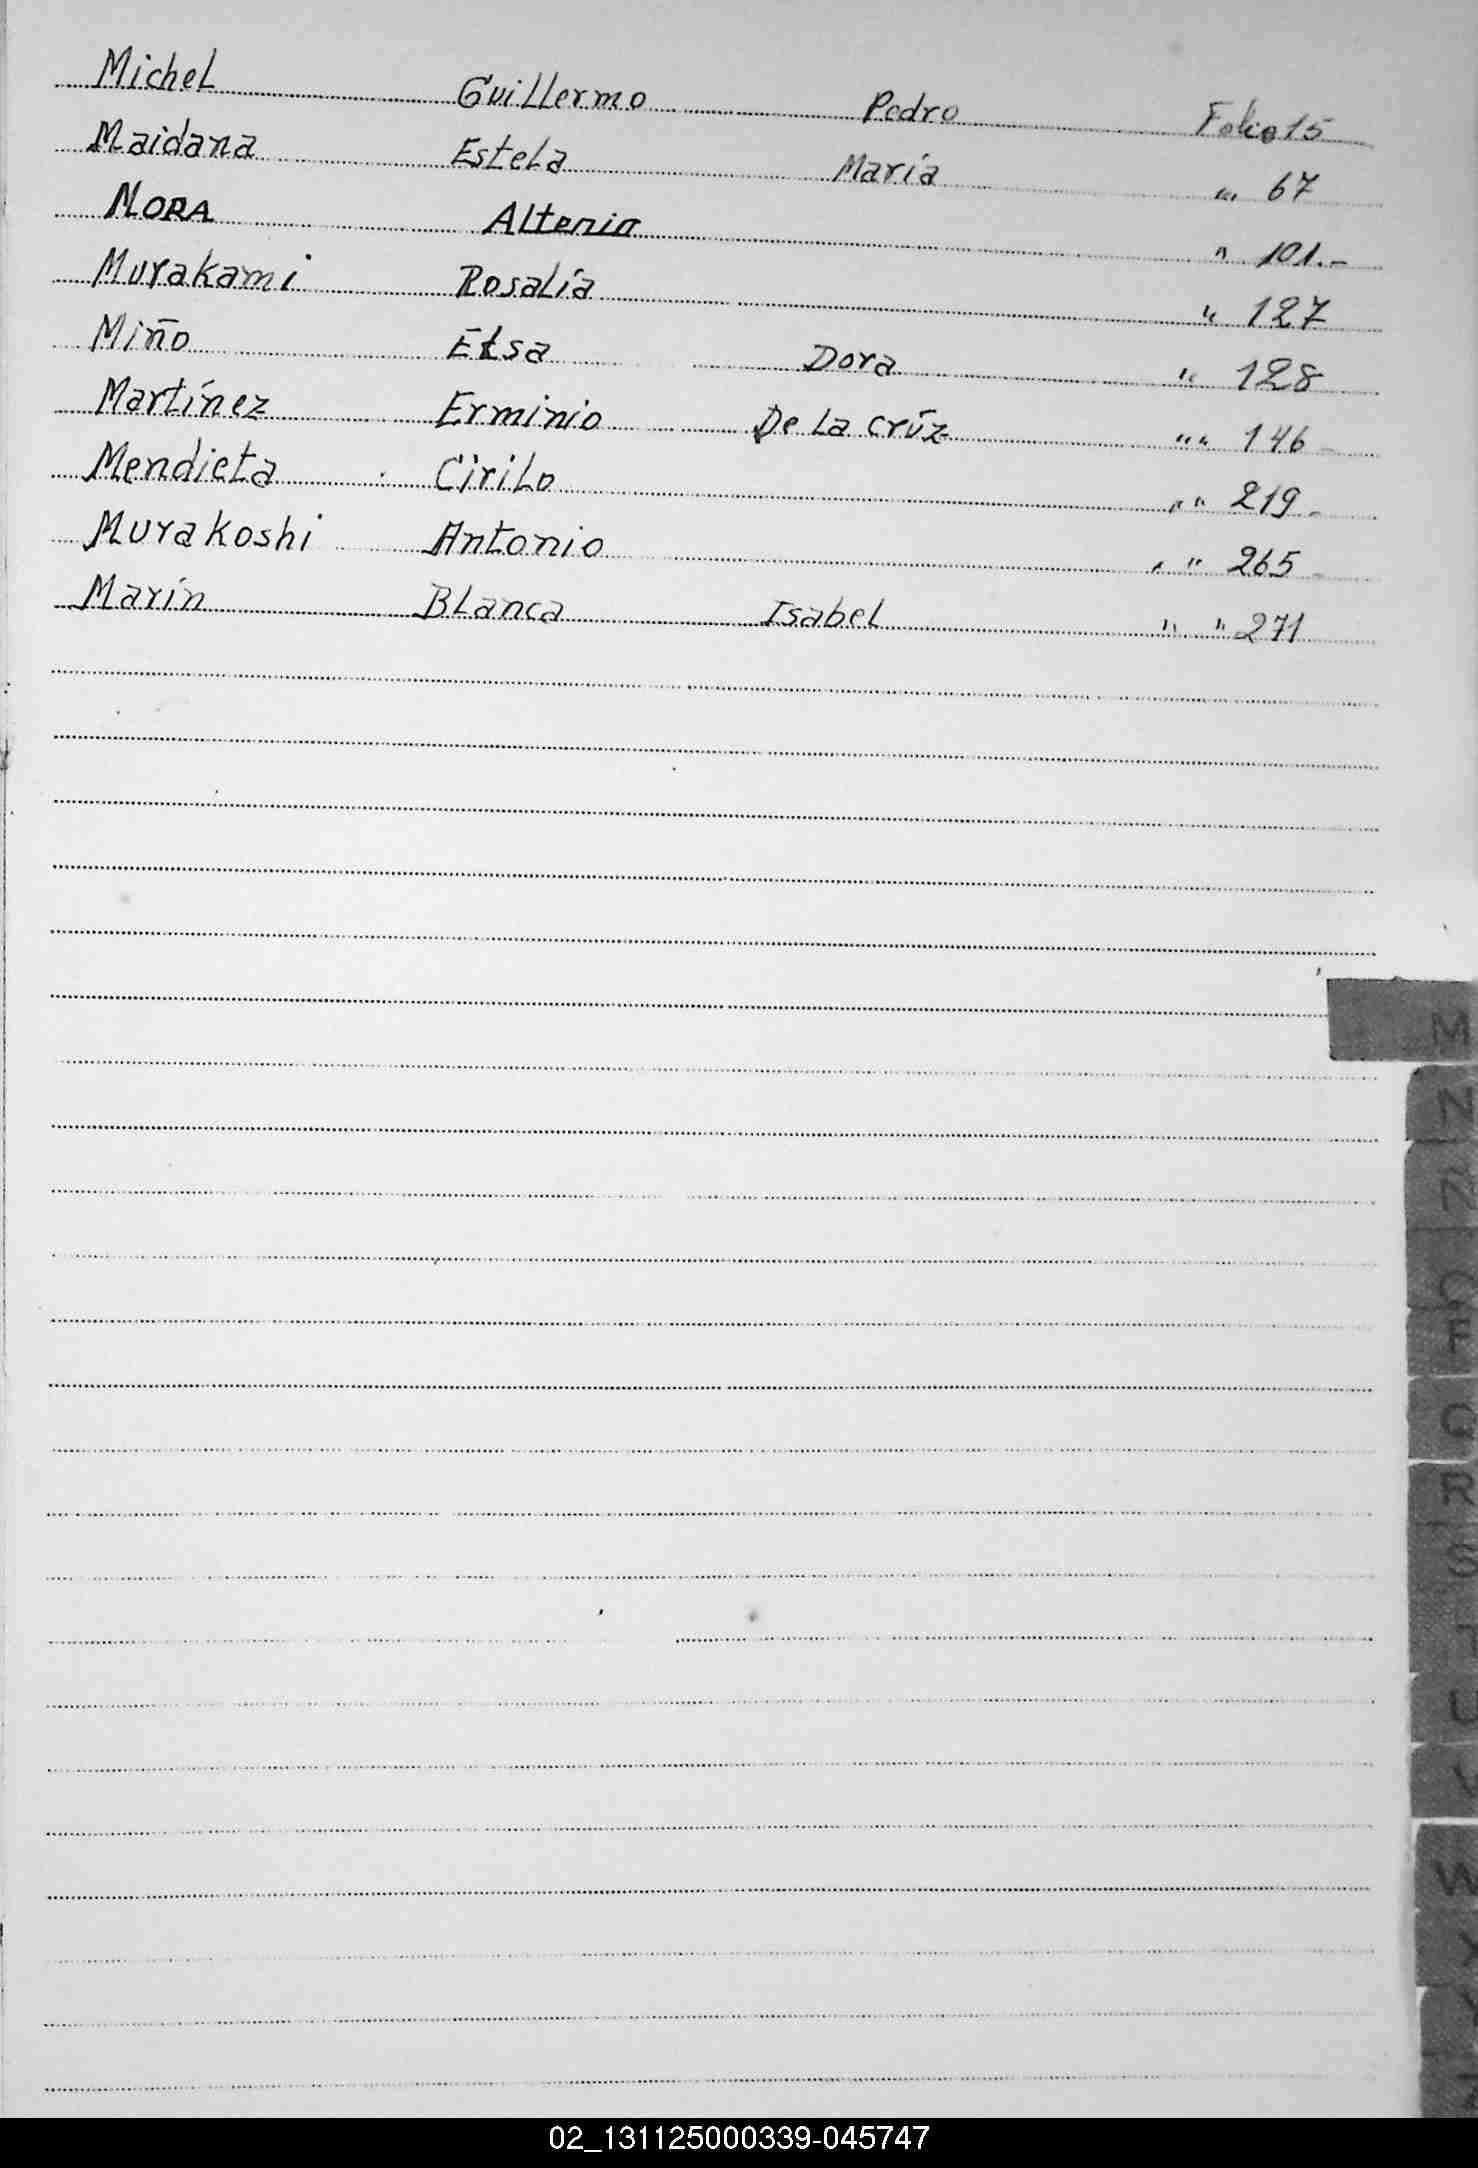 Michel Guillermo Pedro Folio 15
Maidana Estela María " 67
MORA Altenia " 101.-
Murakami Rosalía " 127
Miño Elsa Dora " 128
Martínez Erminio De La Crúz "" 146-
Mendieta Cirilo "" 219-
Murakoshi Antonio " " 265-
Marín Blanca Isabel " " 271
M
N
Ñ
O
P
Q
R
S
T
U
V
W
X
02_131125000339-045747